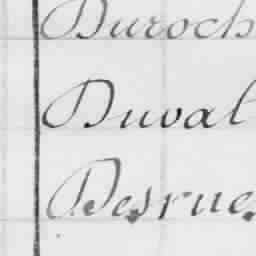 Duroch
Duval
Desrue.